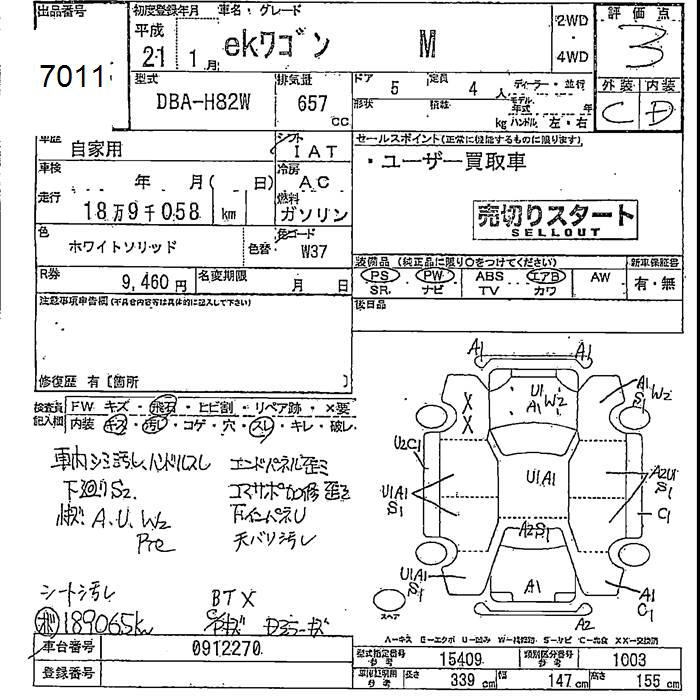 出品番号 初度登録年月 車名・グレード 評価点
7011
平成 21 1月 ekワゴン M 2WD・4WD 3
型式 DBA-H82W 排気量 657 cc
ドア 5 定員 4人 ディーラー・並行
形状 積載 kg モデル年式 年 ハンドル 左・右
外装 内装
C D
車歴 自家用 シフト IAT
車検 年 月( 日) 冷房 AC
走行 18万9千058 km 燃料 ガソリン
色 ホワイトソリッド 色替 色コード W37
R券 9,460円 名変期限 月 日
セールスポイント(正常に機能するものに限ります)
・ユーザー買取車
売切りスタート
SELLOUT
装備品(純正品に限り○をつけてください) 新車保証書
PS PW ABS エアB AW 有・無
SR ナビ TV カワ
後日品
注意事項申告欄(不具合内容等は具体的に記入して下さい)
修復歴 有〔箇所 〕
検査員記入欄 FW キズ・飛石・ヒビ割・リペア跡・×要
内装 キズ・汚レ・コゲ・穴・スレ・キレ・破レ
車内シミ汚レ、ハンドルスレ エンドパネル歪ミ
下廻りS2. コアサポ加修歪ミ
小キズ A.U.W2 下インパネU
Pre 天バリ汚レ
シート汚レ BTX
ボ 189065km
A1 A1
U1 A1 W2
A1 S1 W2
X X
U2C1
U1A1 S1
U1A1
A2U1 S1
C1
A2S1
U1A1 S1
A1
A1 C1
A2
スペア
A-キズ E-エクボ U-凹み W-補修跡 S-サビ C-腐食 XX-交換済
車台番号 0912270
登録番号
型式指定番号 参考 15409 類別区分番号 参考 1003
車庫証明用 参考 長さ 339 cm 幅 147 cm 高さ 155 cm